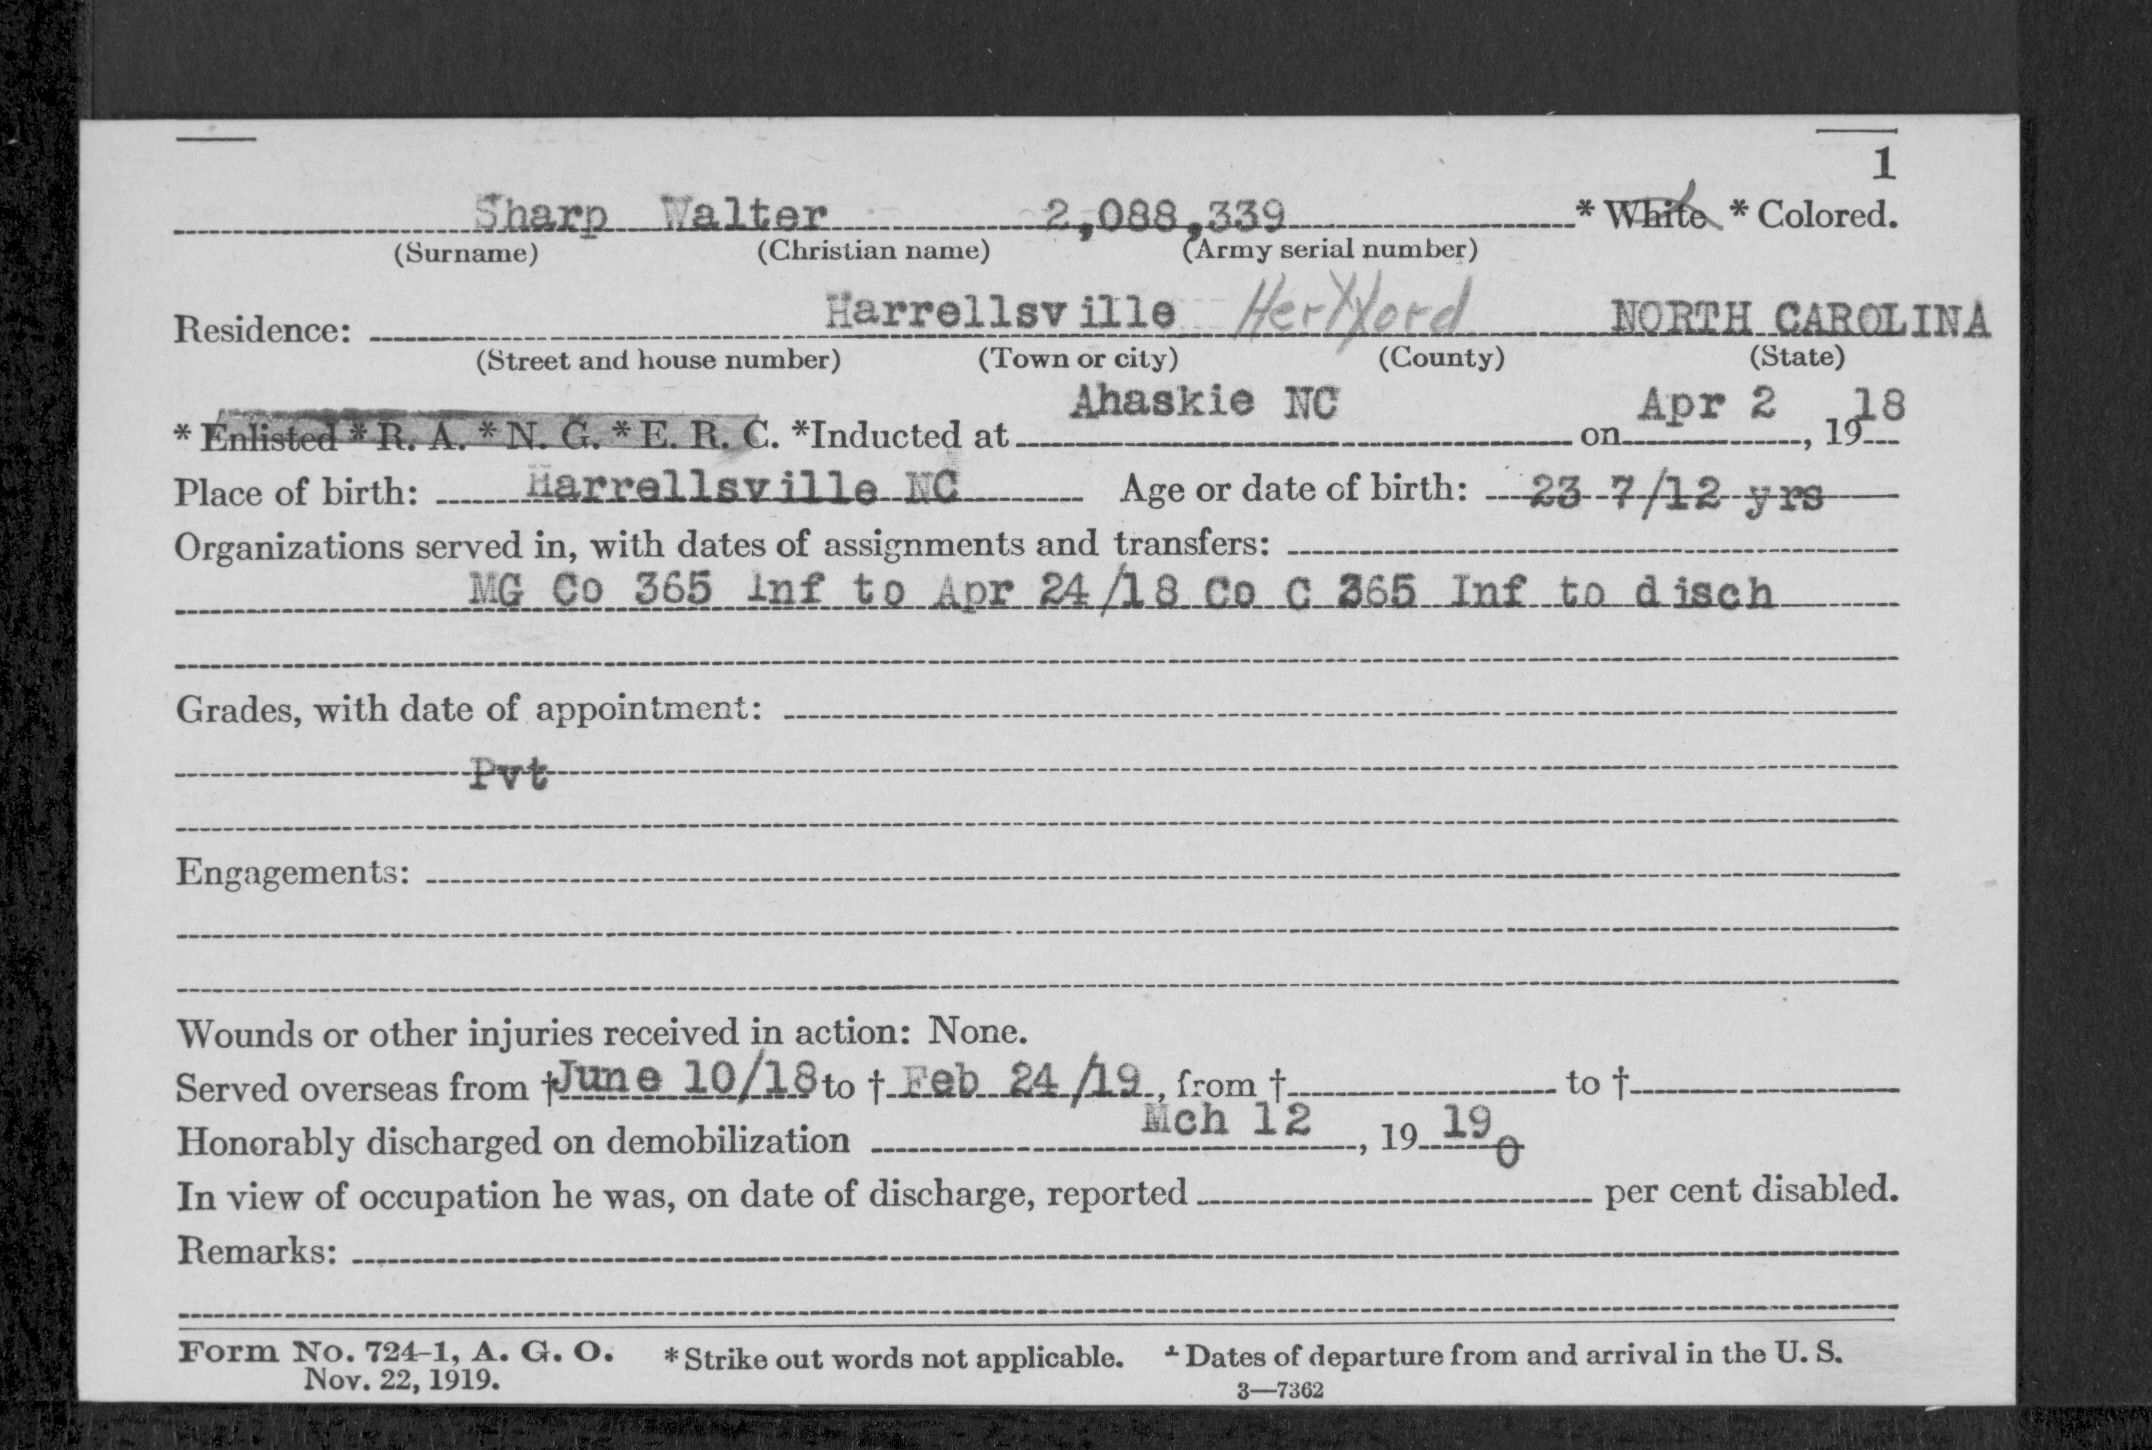 1
Sharp Walter 2,088,339 * White * Colored.
(Surname) (Christian name) (Army serial number)
Residence: Harrellsville Hertford NORTH CAROLINA
(Street and house number) (Town or city) (County) (State)
* Enlisted * R. A. * N. G. * E. R. C. *Inducted at Ahaskie NC on Apr 2, 1918
Place of birth: Harrellsville NC Age or date of birth: 23 7/12 yrs
Organizations served in, with dates of assignments and transfers:
MG Co 365 Inf to Apr 24/18 Co C 365 Inf to disch
Grades, with date of appointment:
Pvt
Engagements:
Wounds or other injuries received in action: None.
Served overseas from † June 10/18 to † Feb 24/19, from † to †
Honorably discharged on demobilization Mch 12, 19 19 0
In view of occupation he was, on date of discharge, reported per cent disabled.
Remarks:
Form No. 724-1, A. G. O. * Strike out words not applicable. † Dates of departure from and arrival in the U. S.
Nov. 22, 1919. 3—7362